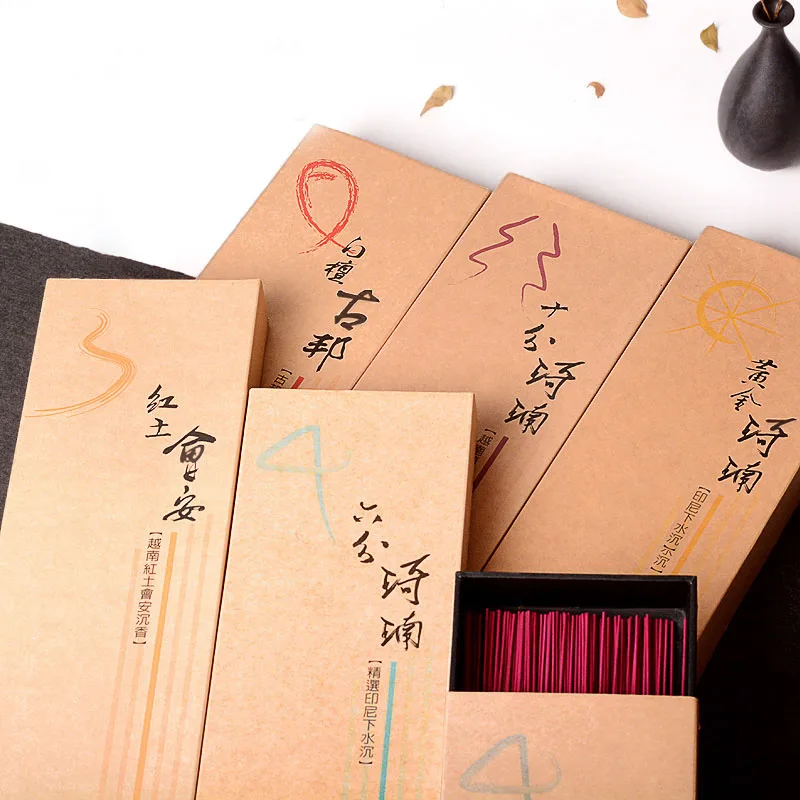 白檀
古邦
十分
琦瑀
【越南紅
黃金
琦瑀
【印尼下水沉
紅土
會安
【越南紅土會安沉香】
六分
琦瑀
【精選印尼下水沉】